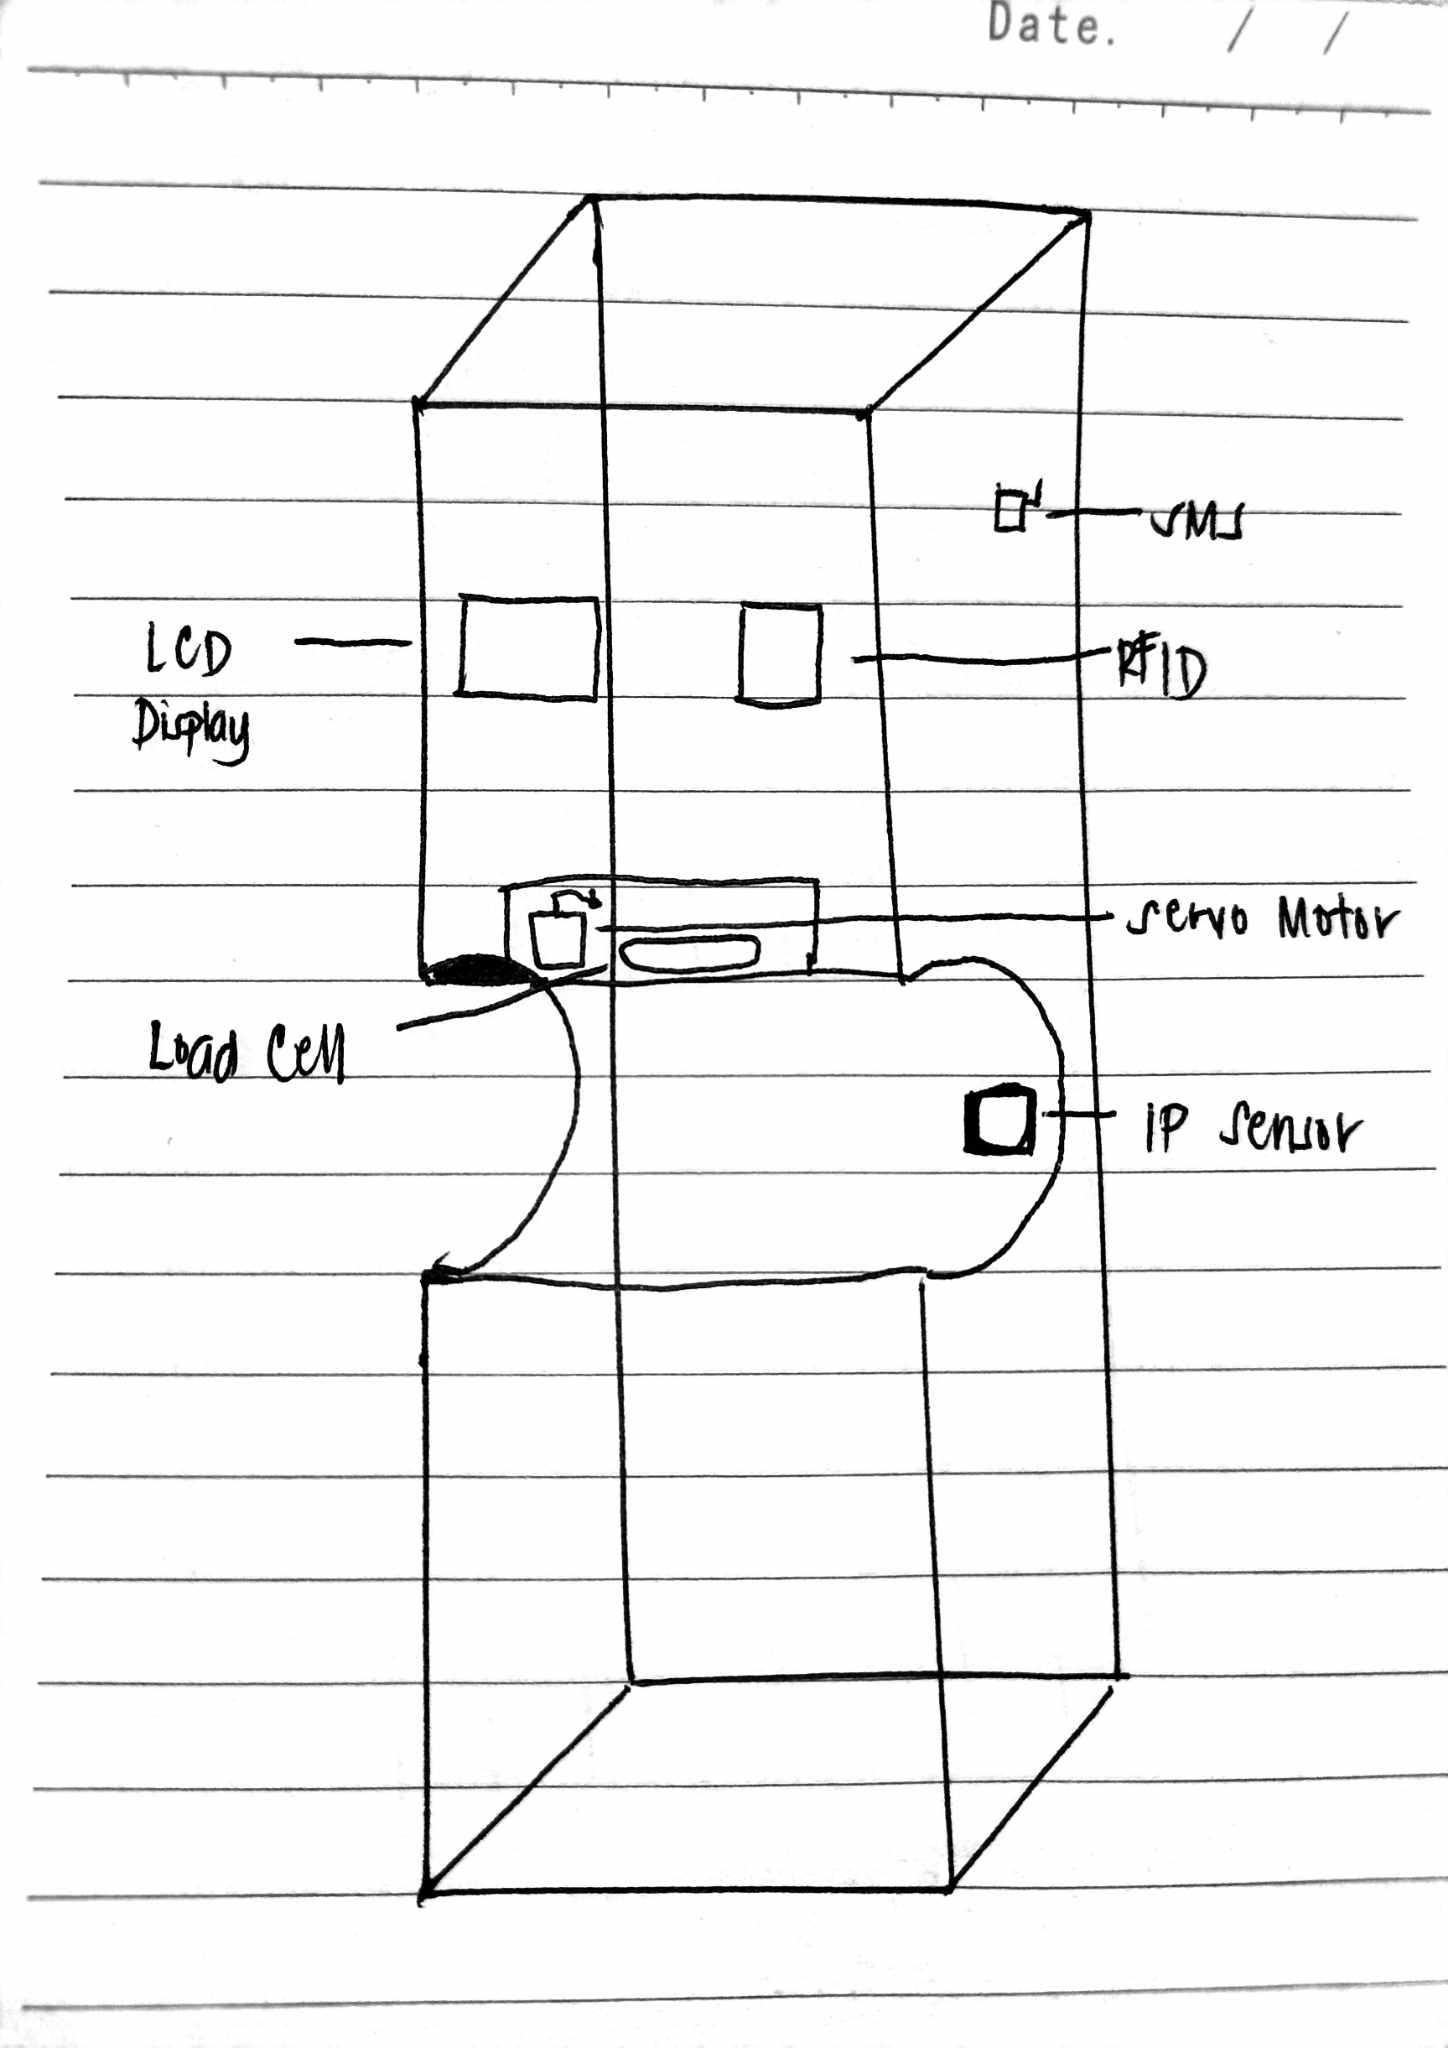 Date. / /
SMS
LCD
Display
RFID
Servo Motor
Load Cell
IP Sensor